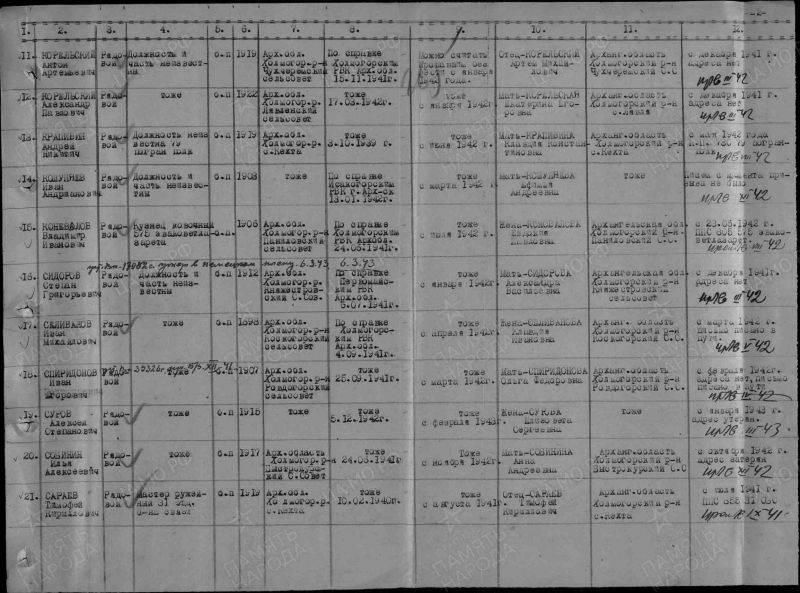 -2-
1. 2. 3. 4. 5. 6. 7. 8. 9. 10. 11. 12.
11. КОРЕЛЬСКИЙ Антон Артемьевич Рядовой Должность и часть неизвестны б.п 1919 Арх.обл. Холмогор.р-н Чухчеремский сельсовет По справке Холмогорским РВК Арх.обл. 15.11.1941г. Можно считать пропавшим без вести с января 1942 года. Отец-КОРЕЛЬСКИЙ Артем Михайлович Арханг.область Холмогорский р-н Чухчеремский С.С с декабря 1941 г. адреса нет прпв III 42
12. КОРЕЛЬСКИЙ Александр Павлович Рядовой тоже б.п 1922 Арх.обл. Холмогор.р. сельсовет тоже 17.03.1942г. тоже с января 1942г. Мать-КОРЕЛЬСКАЯ Екатерина Егоровна Арханг.область Холмогорский р-н с декабря 1941 г. адреса нет прпв III 42
13. КРАПИВИН Андрей Никитич Рядовой Должность неизвестна 79 погран полк б.п 1919 Арх.обл. Холмогор.р. с.Кехта тоже 3.10.1939 г. тоже с июня 1942 г Мать-КРАПИВИНА Клавдия Константиновна Арханг.область Холмогорский р-н с.Кехта с мая 1942 года погран- полк прпв VIII 42
14. Иван Андрианович Рядовой Должность и часть неизвестны б.п 1908 тоже По справке Исакогорским РВК г.Арх-ск 13.01.1942г. тоже с марта 1942 г Мать- Андреевна тоже Писем с момента призыва не было прпв III 42
15. КОНЕВАЛОВ Владимир Иванович Рядовой Кузнец ковочный 575 эваковетлазарета б.п. 1906 Арх.обл. Холмогор.р-н Паниловский сельсовет По справке Холмогорским РВК Арх.обл. 24.06.1941г. тоже с июля 1942 г. Мать-КОНОВАЛОВА Евдокия Павловна Архангельская обл. Холмогорский р-н Паниловский С.С. с 23.05.1942 г. ППС 808 575 эваковетлазарет. VIII 42
6.3.43 6.3.43
16. СИДОРОВ Степан Григорьевич Рядовой Должность и часть неизвестны б.п 1912 Арх.обл. Холмогор.р. Княжестровский С.Сов. По справке Первомайским РВК Арх.обл. 6.07.1941г. тоже с января 1942г. Мать-СИДОРОВА Александра Васильевна Архангельская обл Холмогорский р-н Княжестровский сельсовет с декабря 1941г. адреса нет прпв III 42
17. СЕЛИВАНОВ Иван Михайлович Рядовой тоже б.п 1898 Арх.обл. Холмогор.р-н Коскогорский сельсовет По справке Холмогорским РВК Арх.обл. 4.09.1941г. тоже с апреля 1942 г. Жена-СЕЛИВАНОВА Клавдия Ивановна Арханг. область Холмогорский р-н Коскогорский С.С. с марта 1942 г. письмо писано в пути. прпв V 42
18. СПИРИДОНОВ Иван Егорович Рядовой тоже б.п 1907 Арх.обл. Холмогор.р-н Ровдогорский сельсовет тоже 25.09.1941г. тоже с марта 1942 г. Мать-СПИРИДОНОВА Ольга Федоровна Арханг.область Холмогорский р-н Ровдогорский С.С. с февраля 1942г. адреса нет, письмо писано в пути прпв IV 42
19. СУРОВ Алексей Степанович Рядовой тоже б.п 1915 тоже тоже 5.12.1942г. тоже с февраля 1943г Жена-СУРОВА Елизавета Сергеевна тоже с января 1943 г адрес утерян. прпв III-43
20. СОБИНИН Илья Алексеевич Рядовой тоже б.п 1917 Арх.область Холмогор.р-н С.Совет тоже 24.06.1941г тоже с ноября 1942г Мать-СОБИНИНА Анна Андреевна Арханг.область Холмогорский р-н С.С с октября 1942 г адрес затерян прпв XII 42
21. САРАЕВ Тимофей Кириллович Рядовой Мастер ружейный 31 отд. б-на связи б.п 1919 Арх.обл. Холмогор.р-н с.Кехта тоже 10.02.1940г. тоже с августа 1941г Отец-САРАЕВ Тимофей Кириллович Арханг.область Холмогорский р-н с.Кехта с июля 1941 г. IX-41
ПАМЯТЬ НАРОДА